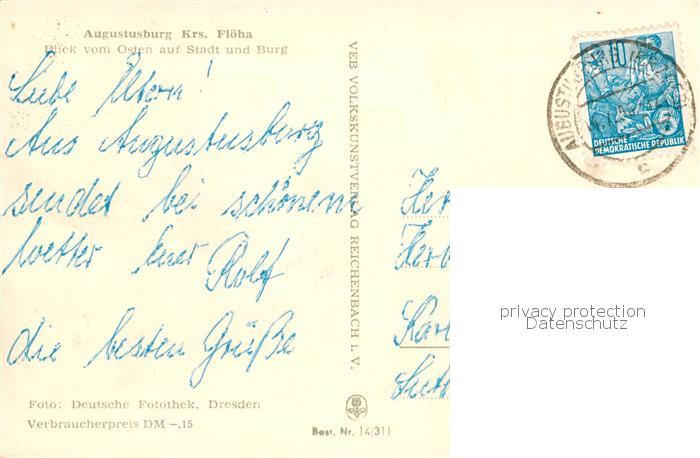 Augustusburg Krs. Flöha
Blick vom Osten auf Stadt und Burg
Liebe Eltern!
Aus Augustusburg
sendet bei schönem
Wetter Euer Rolf
die besten Grüße
Foto: Deutsche Fotothek, Dresden
Verbraucherpreis DM –,15
VEB VOLKSKUNSTVERLAG REICHENBACH i. V.
Best. Nr. 14/311
10
DEUTSCHE
DEMOKRATISCHE REPUBLIK
5
AUGUSTUSBURG
c
Her
Herb
Kar
privacy protection
Datenschutz